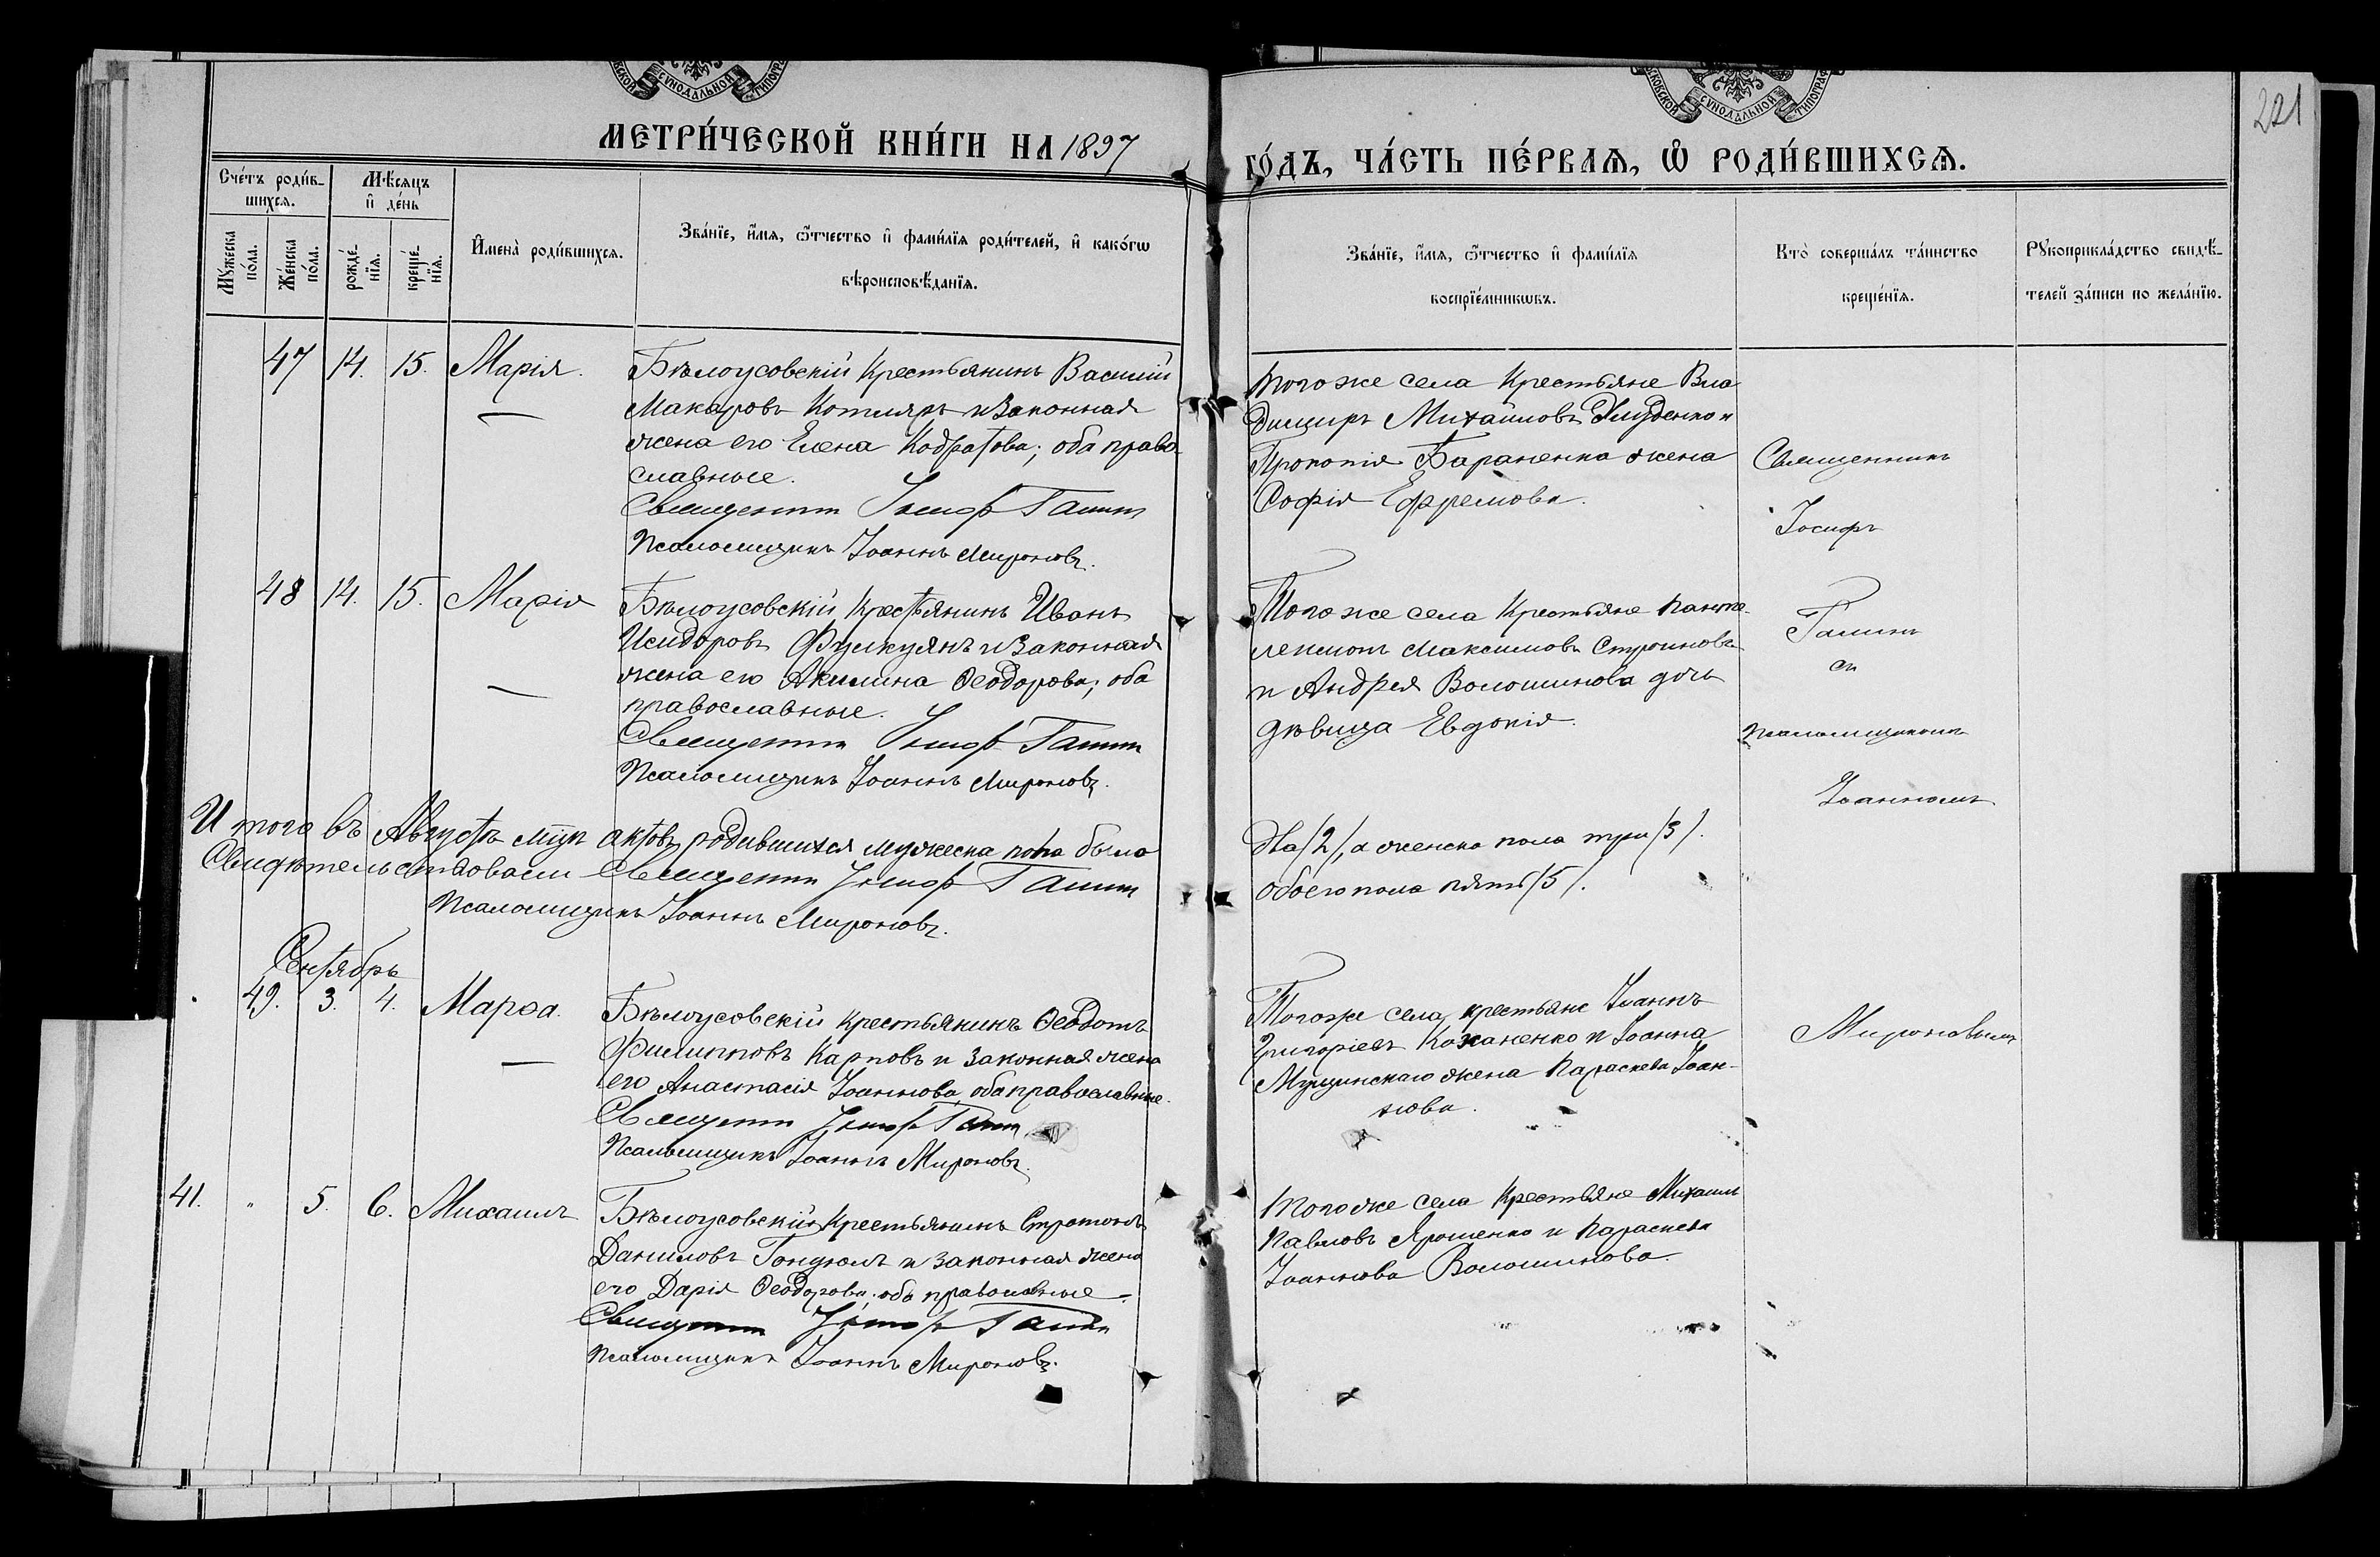 МЕТРИ́ЧЕСКОЙ КНИ́ГИ НА 1897
ГО́ДЪ, ЧА́СТЬ ПЕ́РВАѦ, Ѡ РОДИ́ВШИХСѦ.
221
Сче́тъ роди́в-
шихсѧ.
Мѣсѧцъ
и де́нь
Мꙋ́жеска
по́ла.
Же́нска
по́ла.
рожде́-
нїѧ.
креще́-
нїѧ.
Имена̀ роди́вшихсѧ.
Зва́нїе, и́мѧ, ѻ́тчество и фами́лїѧ роди́телей, и како́гѡ
вѣроисповѣ́данїѧ.
Зва́нїе, и́мѧ, ѻ́тчество и фами́лїѧ
воспрїе́мникѡвъ.
Кто̀ соверша́лъ та́инство
креще́нїѧ.
Рꙋкоприкла́дство свидѣ́-
телей за́писи по жела́нїю.
47 14. 15. Марія.
Бѣлоусовскій Крестьянинъ Василій
Макаровъ Котляръ и законная
жена его Елена Кодратова; оба право-
славные.
Священникъ Іосифъ Галинъ
Псаломщикъ Іоаннъ Мироновъ.
Того же села Крестьяне Вла
димиръ Михаиловъ и
Прокопія Бараненка жена
Софія Ефремова.
Священникъ
Іосифъ
48 14. 15. Марія
Бѣлоусовскій Крестьянинъ Иванъ
Исидоровъ и законная
жена его Акилина Ѳеодорова; оба
православные.
Священникъ Іосифъ Галинъ
Псаломщикъ Іоаннъ Мироновъ.
Того же села Крестьяне Панте-
леимонъ Максимовъ Строиновъ
и Андрея Волошинова дочь
дѣвица Евдокія.
Галинъ
съ
псаломщикомъ
Іоанномъ
Итого въ Августѣ мцѣ актовъ родившихся мужеска пола было
два /2/, а женска пола три /3/.
Свидѣтельствовали Священникъ Іосифъ Галинъ
обоего пола пять /5/.
Псаломщикъ Іоаннъ Мироновъ.
Сентябрь
49. 3. 4. Марѳа.
Бѣлоусовскій крестьянинъ Ѳеодотъ
Филипповъ Карповъ и законная жена
его Анастасія Іоаннова, оба православные.
Священникъ Іосифъ Галинъ
Псаломщикъ Іоаннъ Мироновъ.
Тогоже села, крестьяне Іоаннъ
Григоріевъ и Іоанна
жена Параскева Іоан-
нова.
Мироновымъ
41. " 5. 6. Михаилъ
Бѣлоусовскій Крестьянинъ Стратонъ
Даниловъ и законная жена
его Дарія Ѳеодорова; оба православные.
Священникъ Іосифъ Галинъ
Псаломщикъ Іоаннъ Мироновъ.
Того же села Крестьяне Михаилъ
Павловъ Ярошенко и Параскева
Іоаннова Волошинова.